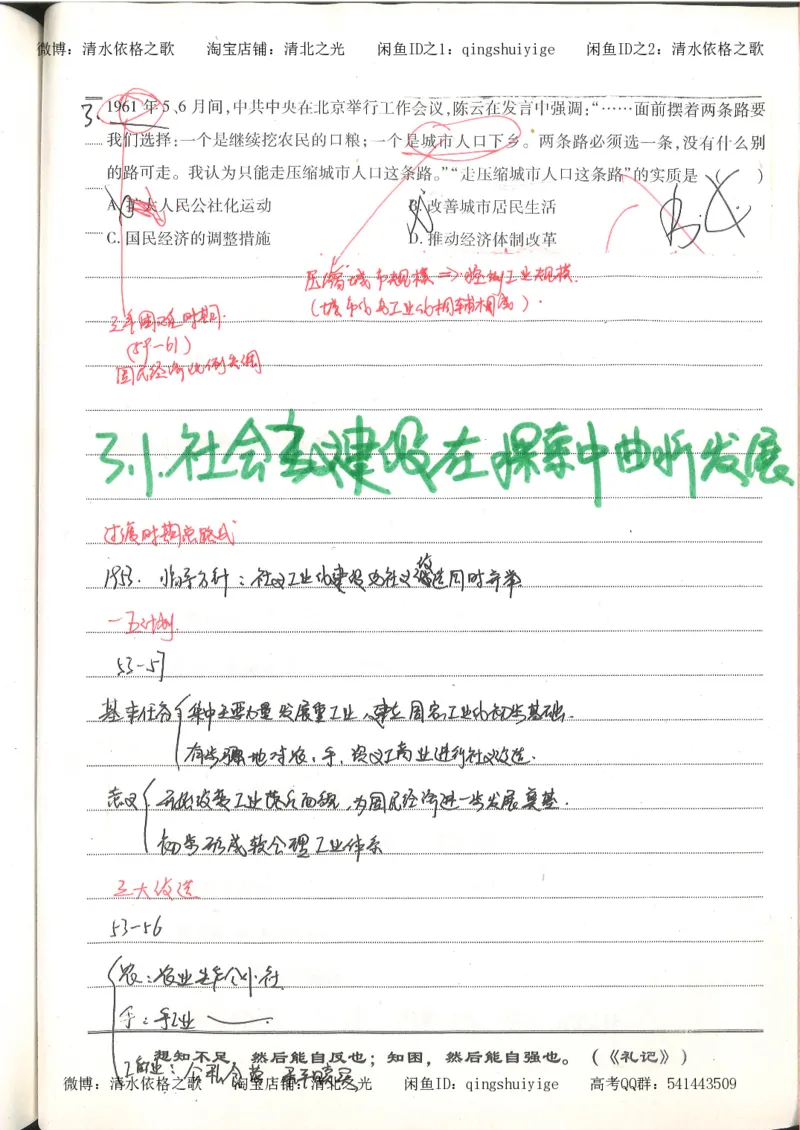 微博：清水依格之歌 淘宝店铺：清北之光 闲鱼ID之1：qingshuiyige 闲鱼ID之2：清水依格之歌
3. 1961年5、6月间，中共中央在北京举行工作会议，陈云在发言中强调：“……面前摆着两条路要
我们选择：一个是继续挖农民的口粮；一个是城市人口下乡。两条路必须选一条，没有什么别
的路可走。我认为只能走压缩城市人口这条路。”“走压缩城市人口这条路”的实质是（ ）
A. 扩大人民公社化运动 B. 改善城市居民生活
C. 国民经济的调整措施 D. 推动经济体制改革
压缩城市规模⇒控制工业规模.
(城市化与工业化相辅相成).
三年困难时期.
(59-61)
国民经济比例失调
3.1.社会主义建设在探索中曲折发展
过渡时期总路线
1953. 指导方针：社义工业化建设与社义改造同时并举
一五计划.
53-57
基本任务 集中主要力量发展重工业,建立国家工业化初步基础.
有步骤地对农、手、资义工商业进行社义改造.
意义 开始改变工业落后面貌,为国民经济进一步发展奠基.
初步形成较合理工业体系
三大改造
53-56
农：农业生产合作社
手：手工业
想知不足，然后能自反也；知困，然后能自强也。（《礼记》）
工商业：公私合营
微博：清水依格之歌 淘宝店铺：清北之光 闲鱼ID：qingshuiyige 高考QQ群：541443509